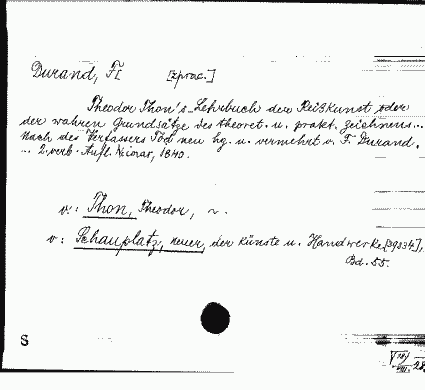 Durand, F. [zprac.]
Theodor Thon's Lehrbuch der Reißkunst oder
der wahren Grundsätze des theoret. u. prakt. zeichnens...
Nach des Verfassers Tod neu hg. u. vermehrt v. F. Durand.
... 2. verb. Aufl. Weimar, 1840.
v: Thon, Theodor,
v: Schauplatz, neuer, der Künste u. Handwerke, [39034],
Bd. 55.
S